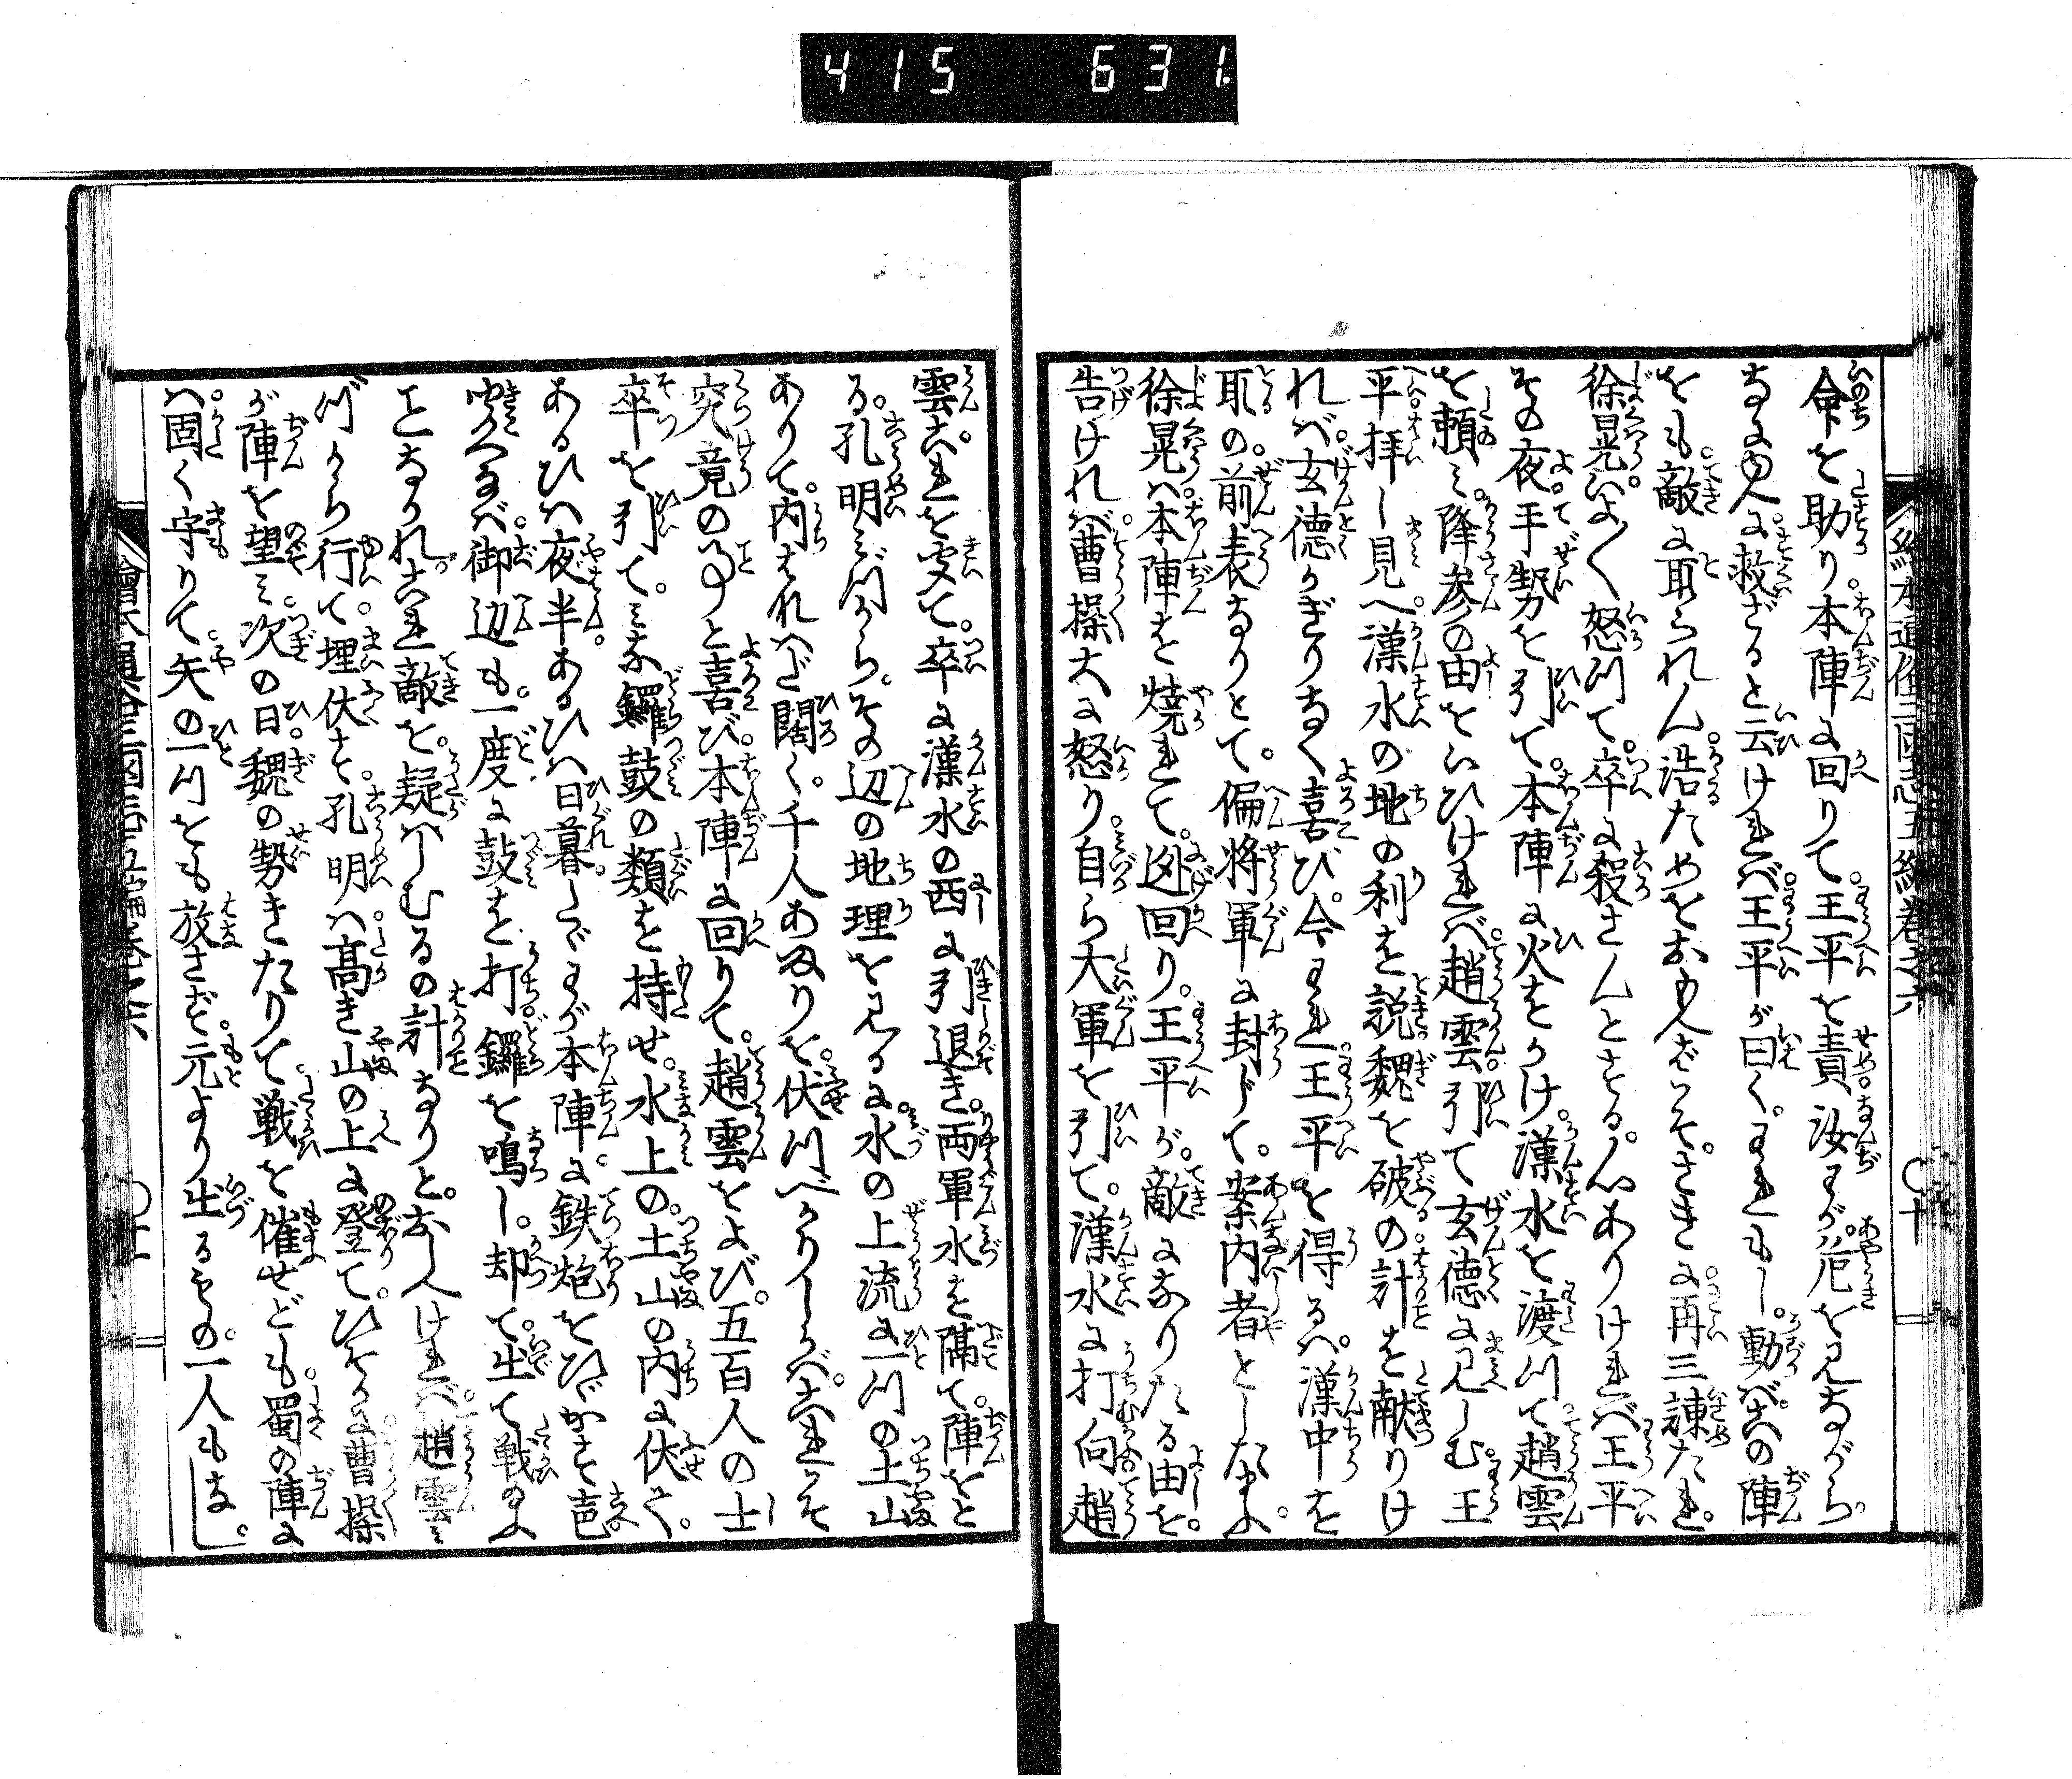 415 631
命を助り本陣に回りて。王平を責汝わが危を見ながら。
なにゆへに救ざると云ければ。王平が曰く。われもし動ばこの陣
をも敵に取られん。浩ためをおもへばこそ。さきに再三諫たれ。
徐晃いよ〱怒つて。卒に殺さんとする心ありければ王平
その夜手勢を引て。本陣に火をかけ。漢水を渡つて趙雲
を頼ミ。降参の由をいひければ。趙雲引て玄徳に見しむ。王
平拝し見へ漢水の地の利を説。魏を破の計を献りけ
れバ。玄徳かぎりなく喜び。今われ王平を得るハ。漢中を
取の。前表なりとて。偏将軍に封じて。案内者としたまふ。
徐晃ハ本陣を焼れて。逃回り。王平が。敵になりたる由を。
告ければ。曹操大に怒り。自ら大軍を引て。漢水に打向趙
雲これを支て。卒に漢水の西に引退き。両軍水を隔て。陣をと
る。孔明ミづから。その辺の地理を見るに。水の上流に一つの土山
ありて。内これハだ闊く。千人あまりを。伏つべかりしかバ。これこそ
究竟の事と喜び。本陣に回りて。趙雲をよび。五百人の士
卒を引て。ミな鑼鼓の類を持せ。水上の。土山の内に伏さく。
あるひハ夜半。あるひハ日暮。しづわが本陣に鉄炮をひゞかさせ声。
聞へなば。御辺も。一度に鼓を打。鑼を鳴し。却て。出て戦ふ
ことなかれ。これ敵を。疑ハしむるの計なりと。おしへければ。趙雲ミ
づから行て。埋伏を。孔明ハ。高き山の上に登て。ひそかに曹操
が陣を望ミ。次の日。魏の勢きたりて。戦を催せども。蜀の陣に
ハ。固く守りて。矢の一つをも放さず。元より出るもの。一人もなし。